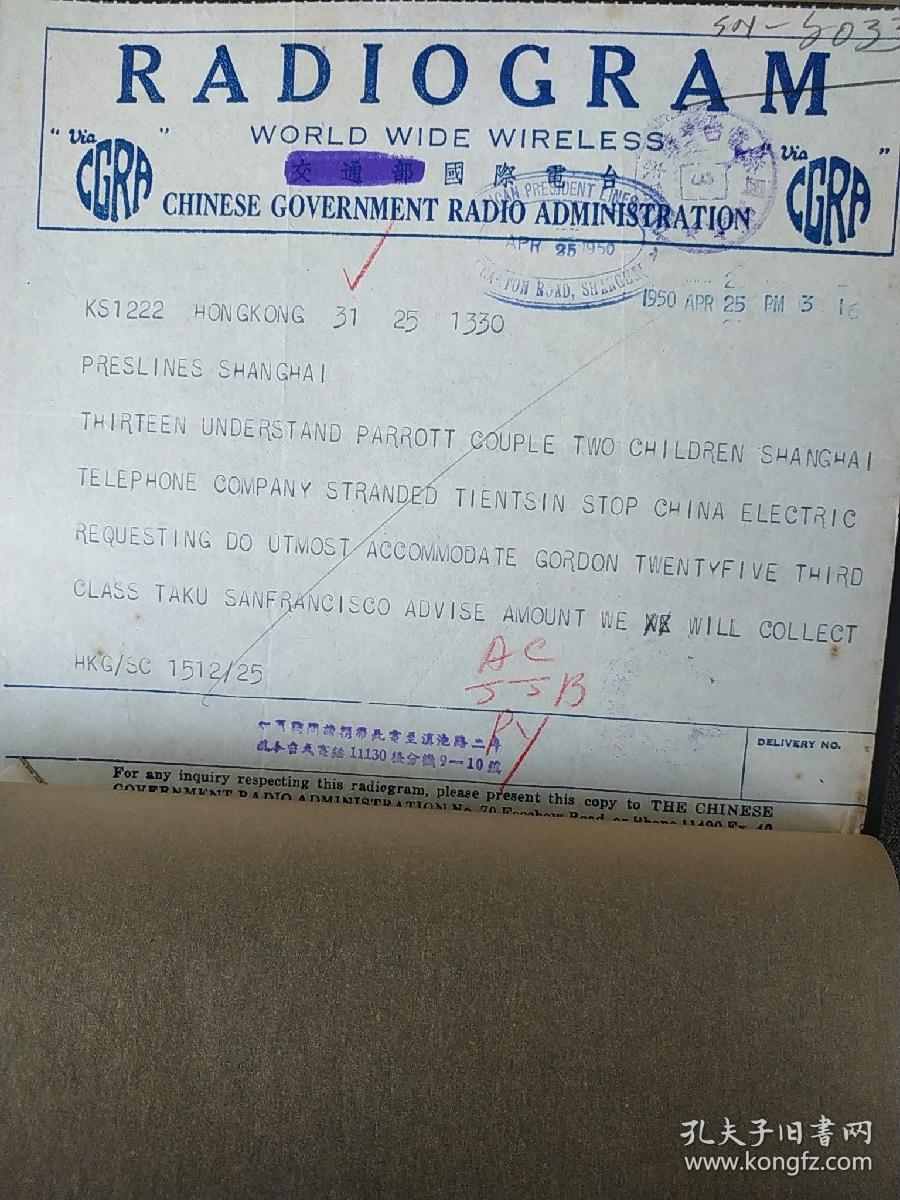 SM-8033
RADIOGRAM
WORLD WIDE WIRELESS
"Via CGRA"
"Via CGRA"
交通部 國際電台
CHINESE GOVERNMENT RADIO ADMINISTRATION
PRESIDENT LINES
APR 25 1950
ROAD, SHANGHAI
1950 APR 25 PM 3 16
KS1222 HONGKONG 31 25 1330
PRESLINES SHANGHAI
THIRTEEN UNDERSTAND PARROTT COUPLE TWO CHILDREN SHANGHAI
TELEPHONE COMPANY STRANDED TIENTSIN STOP CHINA ELECTRIC
REQUESTING DO UTMOST ACCOMMODATE GORDON TWENTYFIVE THIRD
CLASS TAKU SANFRANCISCO ADVISE AMOUNT WE WILL COLLECT
HKG/SC 1512/25
AC
B
PY
如有詢問請攜帶此電至滇池路
11130 9—10號
DELIVERY NO.
For any inquiry respecting this radiogram, please present this copy to THE CHINESE
GOVERNMENT RADIO ADMINISTRATION No. 70
孔夫子旧书网
www.kongfz.com